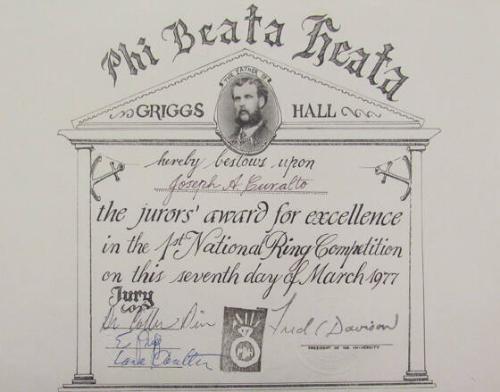 Phi Beata Heata
THE FATHER OF
GRIGGS HALL
hereby bestows upon
Joseph A Curalto
the jurors' award for excellence
in the 1st National Ring Competition
on this seventh day of March 1977
Jury
Fred C Davison
PRESIDENT OF THE UNIVERSITY
Lane Coulter